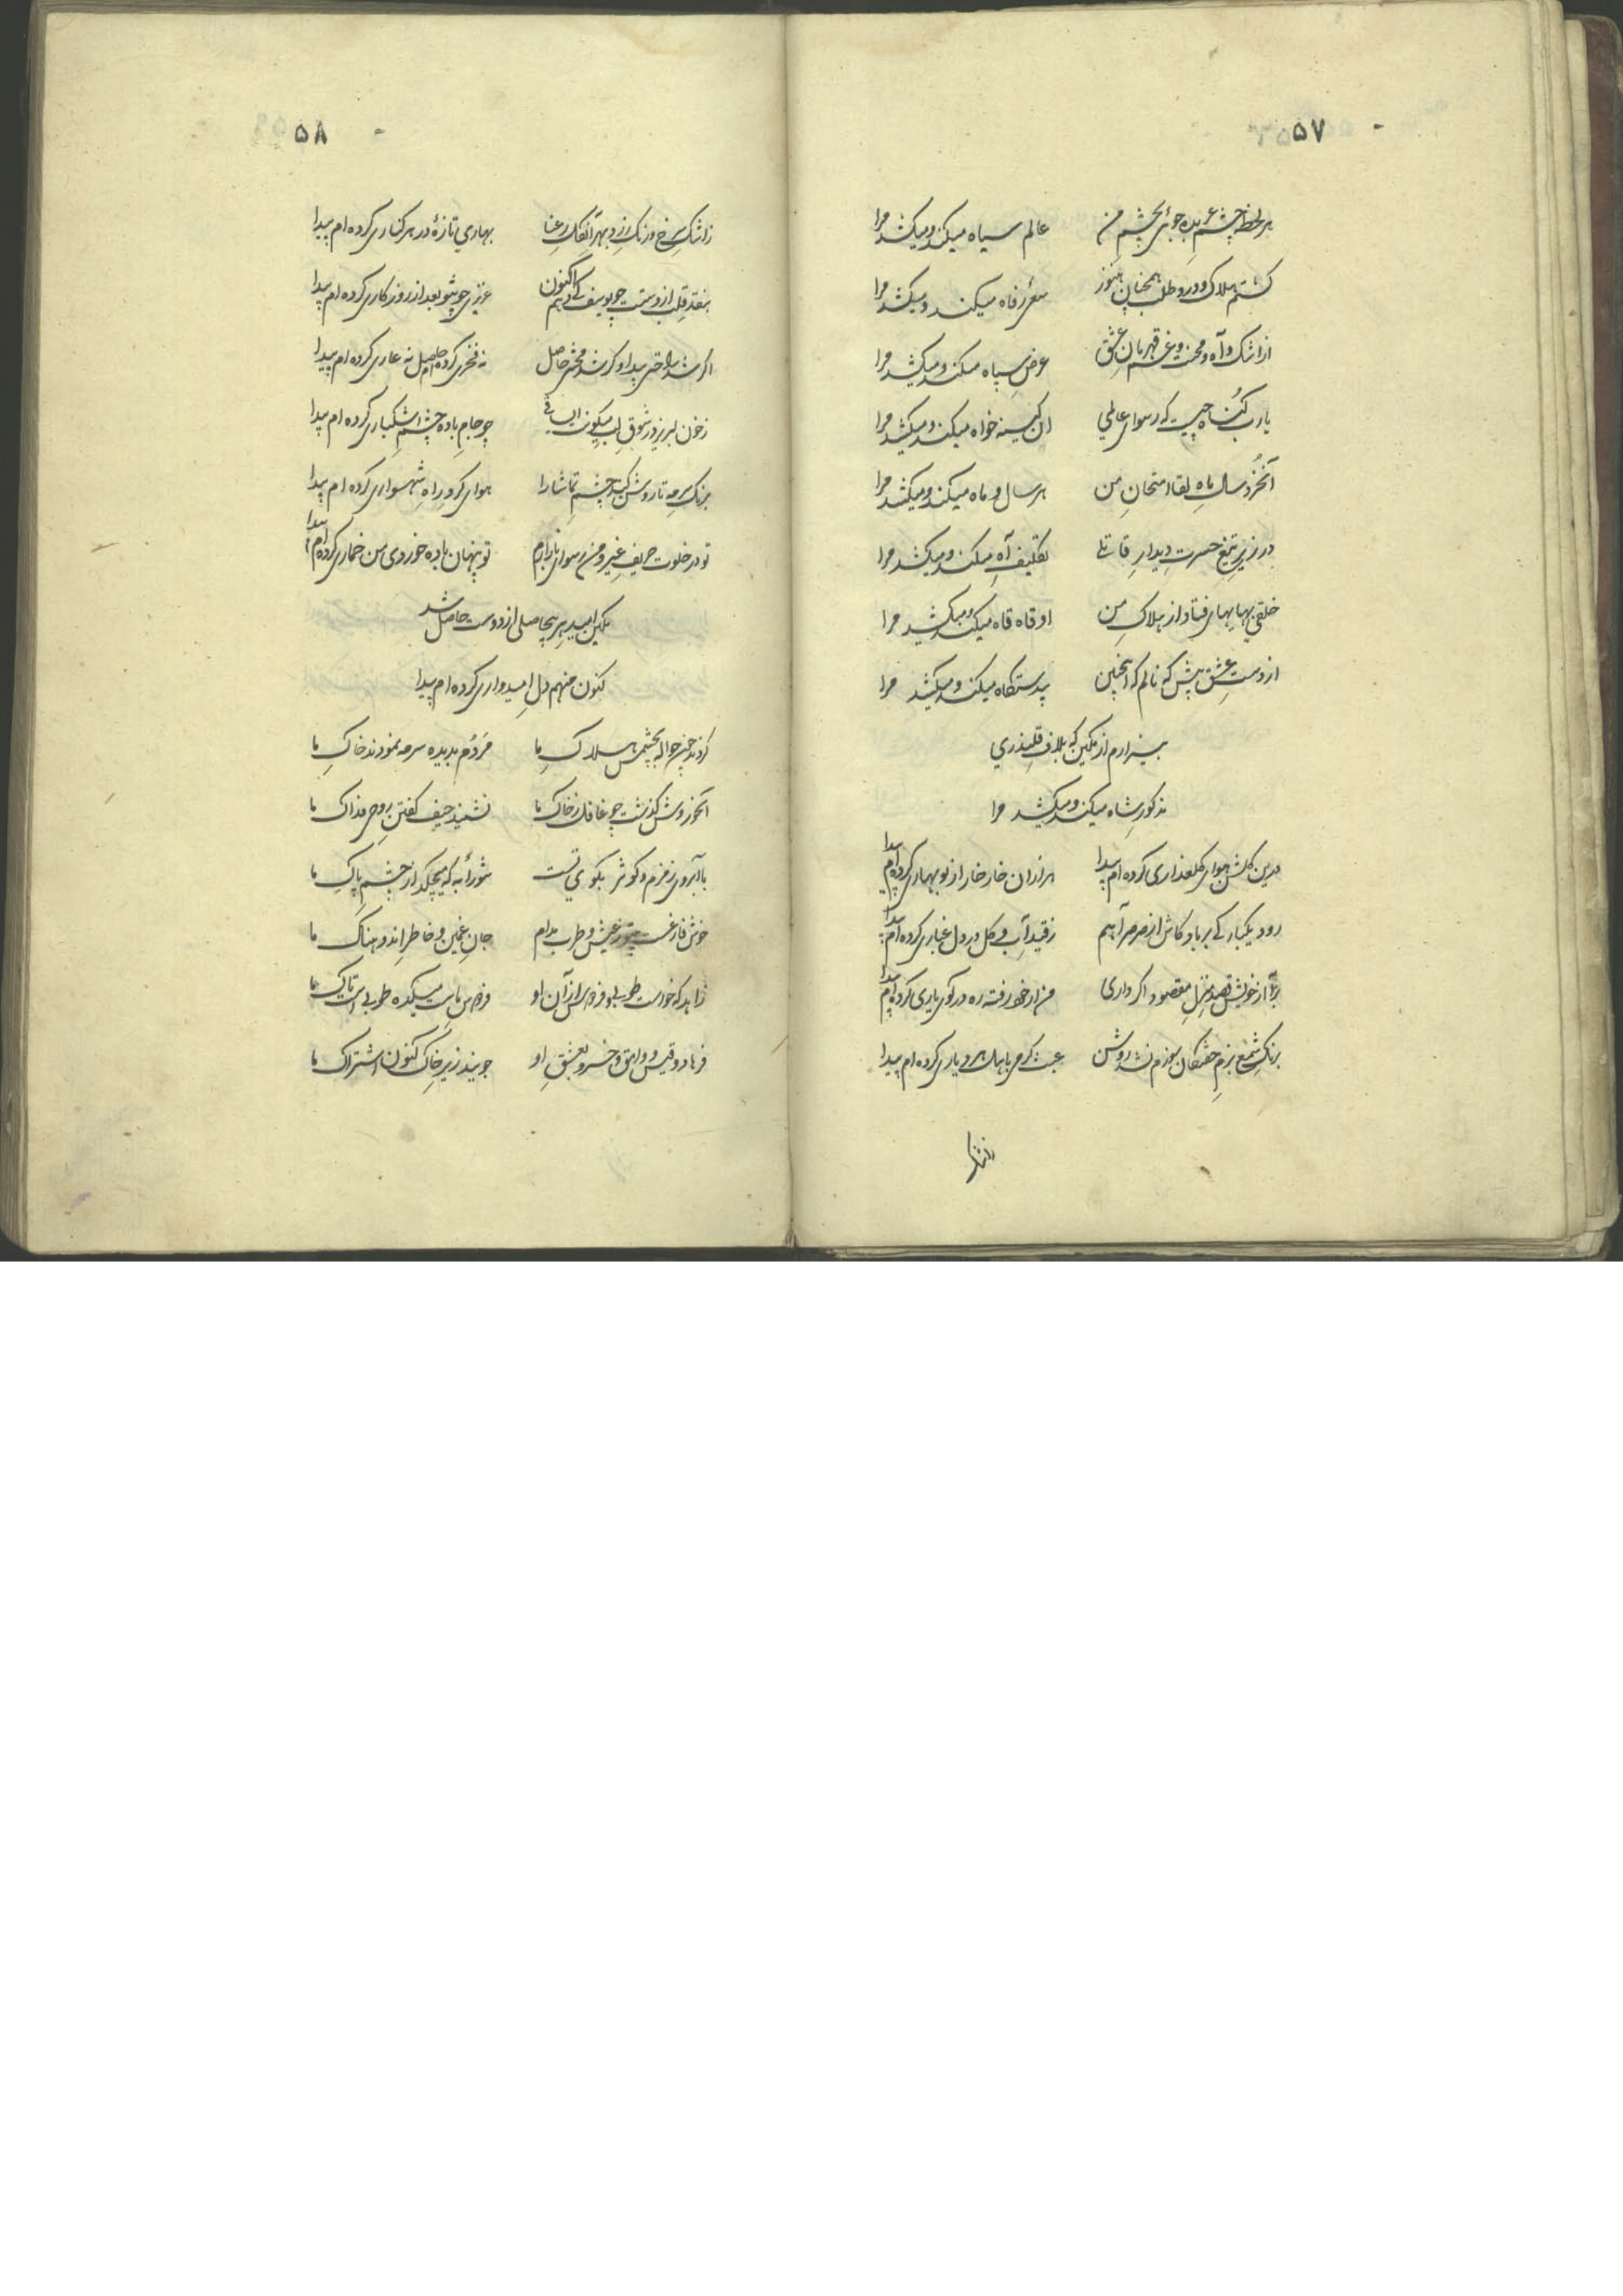 ۵۷
هر لحظه چشم عربده جوئی بچشم من عالم سیاه میکند و میکشد مرا
گشتم هلاک و درد طلب همچنان هنوز سعئ رفاه میکند و میکشد مرا
از اشک و آه و محنت و غم قهرمان عشق عرض سپاه میکند و میکشد مرا
یارب گناه چیست که رسوای عالمی ان کینه خواه میکند و میکشد مرا
آنخرد سال ماه لقا امتحان من هر سال و ماه میکند و میکشد مرا
در زیر تیغ حسرت دیدار قاتلا تکلیف آه میکند و میکشد مرا
خلقی بهایهای فتاد از هلاک من او قاه قاه میکند و میکشد مرا
از دست عشق پیش که نالم که اینچنین بیدستگاه میکند و میکشد مرا
بیزارم از مکین که بلاف قلندری
مذکور شاه میکند و میکشد مرا
درین گلشن هوای گلعذاری کرده ام پیدا هزاران خار خار از نوبهاری کرده ام پیدا
رود یکبارگی بر باد کاش از صرصر آهم ز قید آب و گل در دل غباری کرده ام پیدا
برآ از خویش قصد منزل مقصود اگر داری من از خود رفته ره در کوی یاری کرده ام پیدا
برنگ شمع بزم خفتگان سوزم نشد روشن عبث گرمی باهل هر دیاری کرده ام پیدا
ز اشک
۵۸
ز اشک سرخ و رنگ زرد بهر آنگل رعنا بهاری تازۀ در هر کناری کرده ام پیدا
بنقد قلب از دستت چو یوسف کی دهم اکنون عزیزی چو تو بعد از روزگاری کرده ام پیدا
اگر شد راحتی پیدا و گر شد محنتی حاصل نه فخری کرده ام حاصل نه عاری کرده ام پیدا
ز خون لبریز در شوق لب میگونت ای ساقی چو جام باده چشم اشکباری کرده ام پیدا
برنگ سرمه تا روشن کند چشم تماشا را هوای گرد راه شهسواری کرده ام پیدا
تو در خلوت حریف غیر و من رسوای بازارم تو پنهان باده خوردی من خماری کرده ام پیدا
مکین امید بر بیحاصلی از دوست حاصل شد
کنون منهم دل امیدواری کرده ام پیدا
کردند چون حواله بچشمش هلاک ما مردم بدیده سرمه نمودند خاک ما
آنخوروش گذشت چو غافل ز خاک ما نشنید حیف گفتن روحی فداک ما
با آبروی زمزم و کوثر بکوی تست شورابه که میچکد از چشم پاک ما
خوش فارغست بیتو ز عیش و طرب مدام جان غمین و خاطر اندوهناک ما
زاهد که خواست طوبی و فردوس از آن او فردوس ماست میکده طوبی است تاک ما
فرهاد و قیس و وامق و خسرو بعشق او جویند زیر خاک کنون اشتراک ما